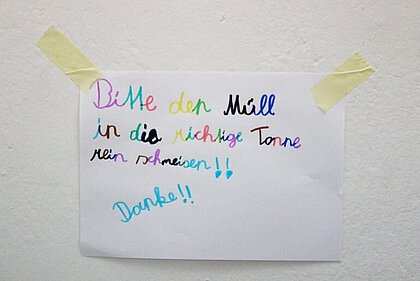 Bitte den Müll
in die richtige Tonne
rein schmeisen!!
Danke!!